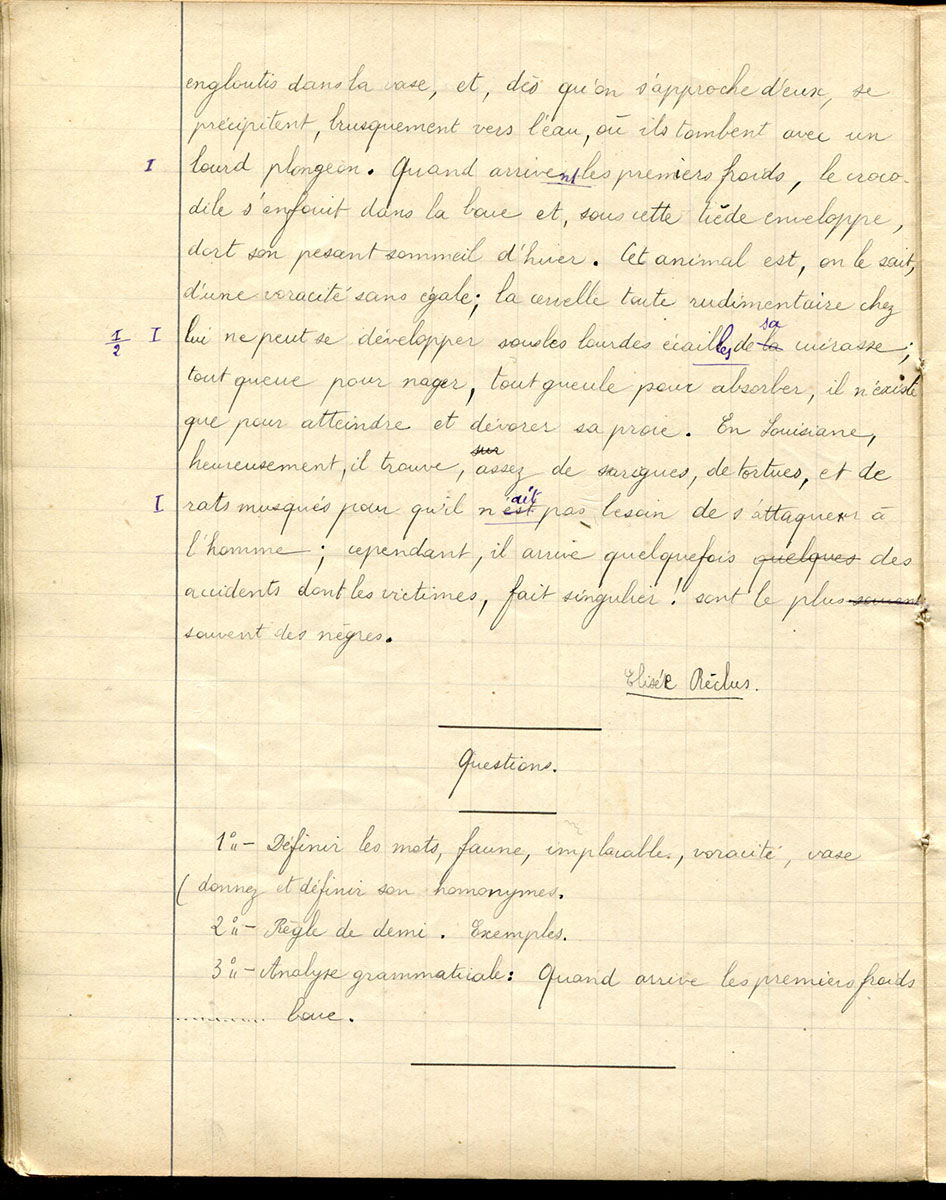 engloutis dans la vase, et, dès qu'on s'approche d'eux, se
précipitent, brusquement vers l'eau, où ils tombent avec un
I lourd plongeon. Quand arrivent les premiers froids, le croco-
dile s'enfouit dans la boue et, sous cette tiède enveloppe,
dort son pesant sommeil d'hiver. Cet animal est, on le sait,
d'une voracité sans égale; la cervelle toute rudimentaire chez
sa
1/2 I lui ne peut se développer sous les lourdes écailles de la cuirasse;
tout queue pour nager, tout gueule pour absorber, il n'existe
que pour atteindre et dévorer sa proie. En Louisiane,
sur
heureusement, il trouve, assez de sarigues, de tortues, et de
ait
I rats musqués pour qu'il n'est pas besoin de s'attaquer à
l'homme; cependant, il arrive quelquefois quelques des
accidents dont les victimes, fait singulier! sont le plus souvent
souvent des nègres.
Elisée Réclus.
Questions.
1°- Définir les mots, faune, implacable, voracité, vase
(donnez et définir son homonymes.
2°- Règle de demi. Exemples.
3°- Analyse grammaticale: Quand arrive les premiers froids
........... boue.